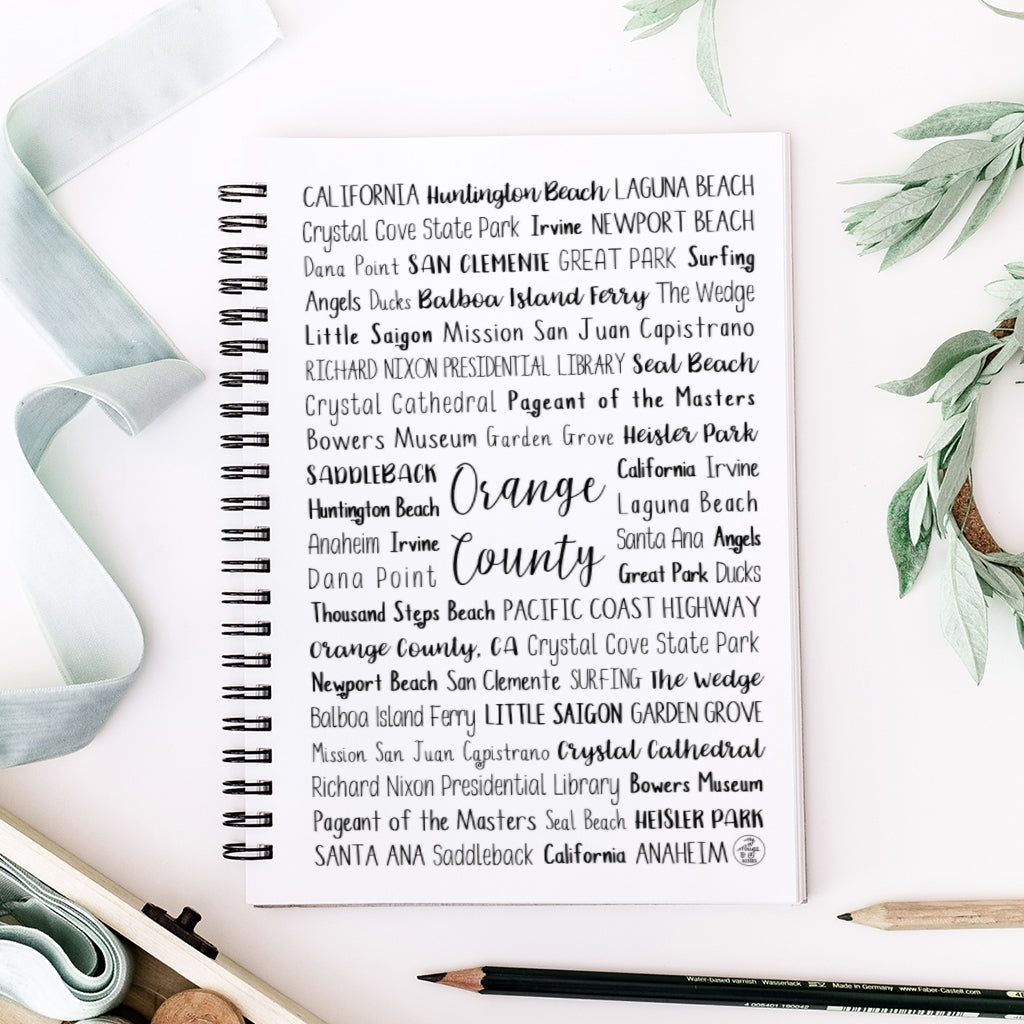 CALIFORNIA Huntington Beach LAGUNA BEACH
Crystal Cove State Park Irvine NEWPORT BEACH
Dana Point SAN CLEMENTE GREAT PARK Surfing
Angels Ducks Balboa Island Ferry The Wedge
Little Saigon Mission San Juan Capistrano
RICHARD NIXON PRESIDENTIAL LIBRARY Seal Beach
Crystal Cathedral Pageant of the Masters
Bowers Museum Garden Grove Heisler Park
SADDLEBACK
Huntington Beach
Anaheim Irvine
Dana Point
Orange
County
California Irvine
Laguna Beach
Santa Ana Angels
Great Park Ducks
Thousand Steps Beach PACIFIC COAST HIGHWAY
Orange County, CA Crystal Cove State Park
Newport Beach San Clemente SURFING The Wedge
Balboa Island Ferry LITTLE SAIGON GARDEN GROVE
Mission San Juan Capistrano Crystal Cathedral
Richard Nixon Presidential Library Bowers Museum
Pageant of the Masters Seal Beach HEISLER PARK
SANTA ANA Saddleback California ANAHEIM
Water-based varnish Wasserlack Made in Germany www.Faber-Castell.com
4 005401 190042